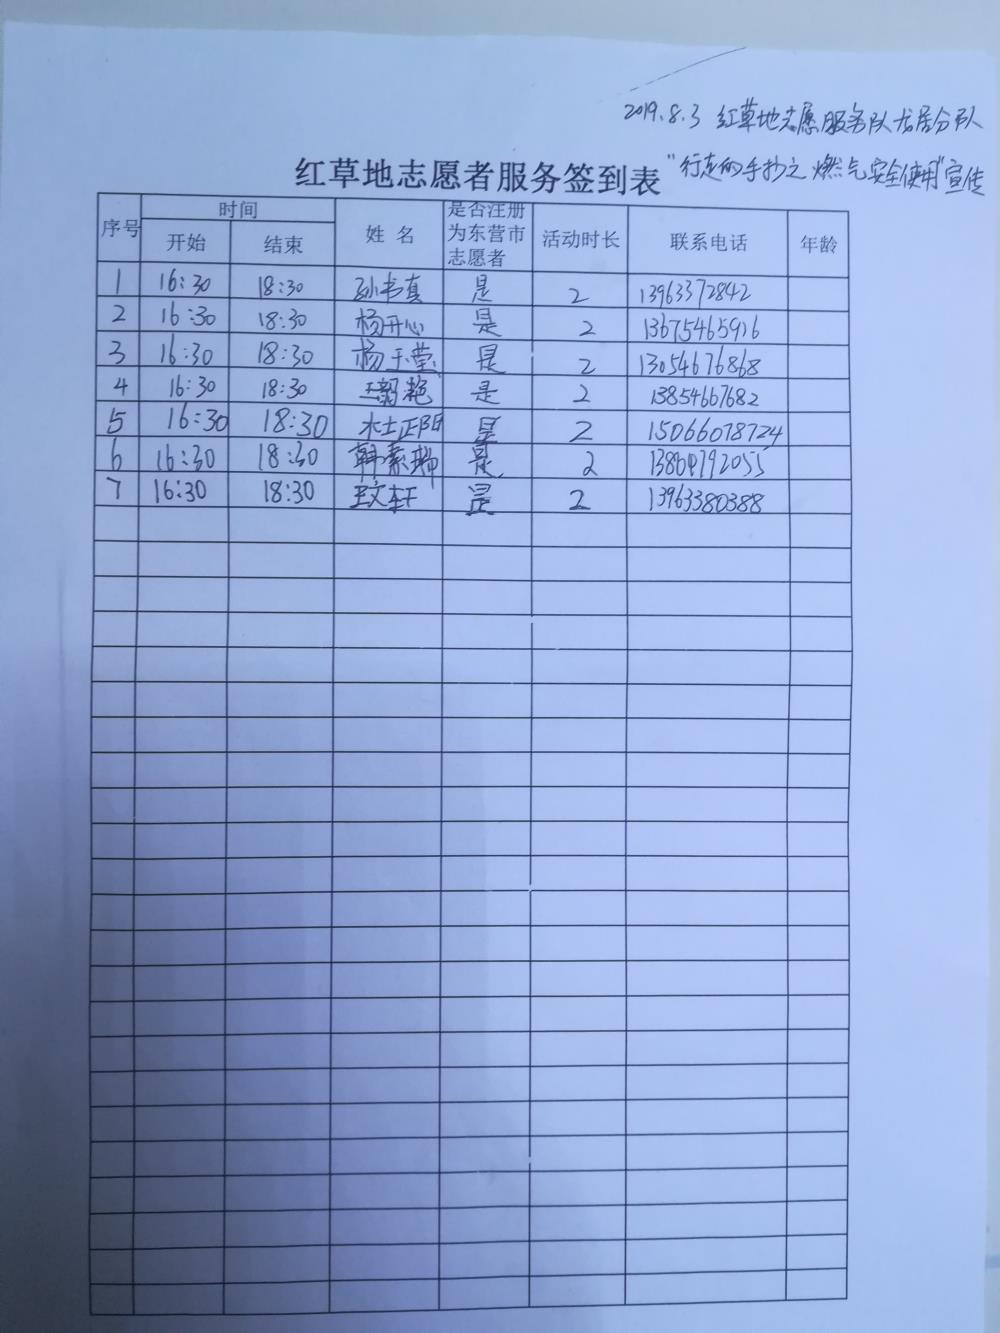 2019.8.3 红草地志愿服务队龙居分队
红草地志愿者服务签到表 "行走的手抄之 燃气安全使用"宣传
序号 时间 姓名 是否注册为东营市志愿者 活动时长 联系电话 年龄
开始 结束
1 16:30 18:30 孙书真 是 2 13963372842
2 16:30 18:30 杨开心 是 2 13675465916
3 16:30 18:30 杨玉莹 是 2 13054676868
4 16:30 18:30 是 2 13854667682
5 16:30 18:30 正阳 是 2 15066078724
6 16:30 18:30 韩素 是 2 13864792055
7 16:30 18:30 王文轩 是 2 13963380388